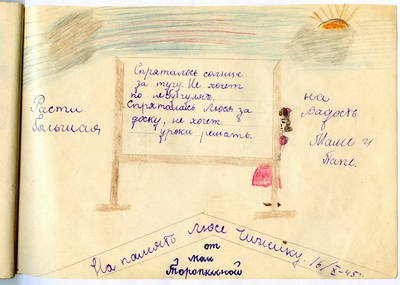 Спряталось солнце
за тучу. Не хочет
по небу гулять.
Спряталась Люся за
доску, не хочет
уроки решать.
Расти
большая
на
радость
Маме и
папе.
На память Люсе
от
Торопкиной